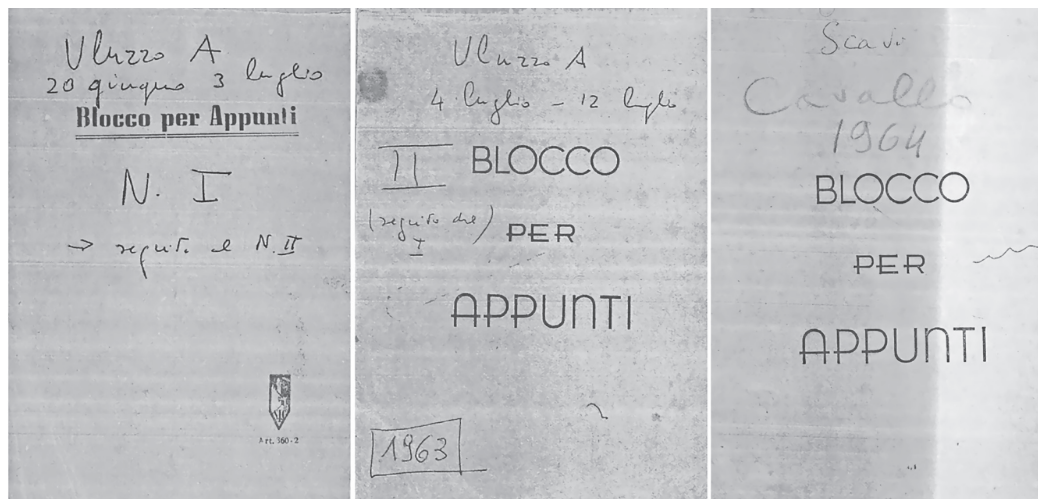 Uluzzo A
20 giugno 3 luglio
Blocco per Appunti
N. I
→ seguito al N. II
Art. 360-2
Uluzzo A
4 luglio - 12 luglio
II BLOCCO
(seguito del I)
PER
APPUNTI
1963
Scavi
Cavallo
1964
BLOCCO
PER
APPUNTI